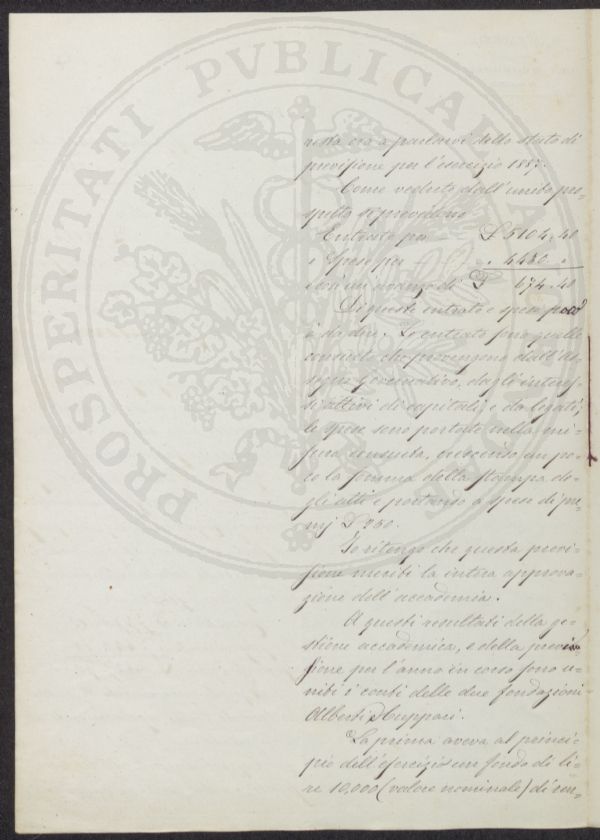 PROSPERITATI PVBLICAE
resta ora a parlarvi dello stato di
previsione per l'esercizio 1887.
Come vedrete dall'unito pro=
spetto si prevedono
Entrate per £ 5104.40
e Spese per " 4430. "
e così un avanzo di £ 674.40
Di queste entrate e spese poco
è da dire. Le entrate sono quelle
consuete che provengono dall'As=
segno governativo, dagli interes=
si attivi di capitali, e da legati;
le spese sono portate nella mi=
sura consueta, crescendo un po=
co la somma della stampa de=
gli atti e portando a spese di pre=
mj £ 950.
Io ritengo che questa previ=
sione meriti la intera approva=
zione dell'accademia.
A questi resultati della ge=
stione accademica, e della previ=
sione per l'anno in corso sono u=
niti i conti delle due fondazioni
Alberti e Cuppari.
La prima aveva al princi=
pio dell'esercizio un fondo di li=
re 10,000 (valore nominale) di